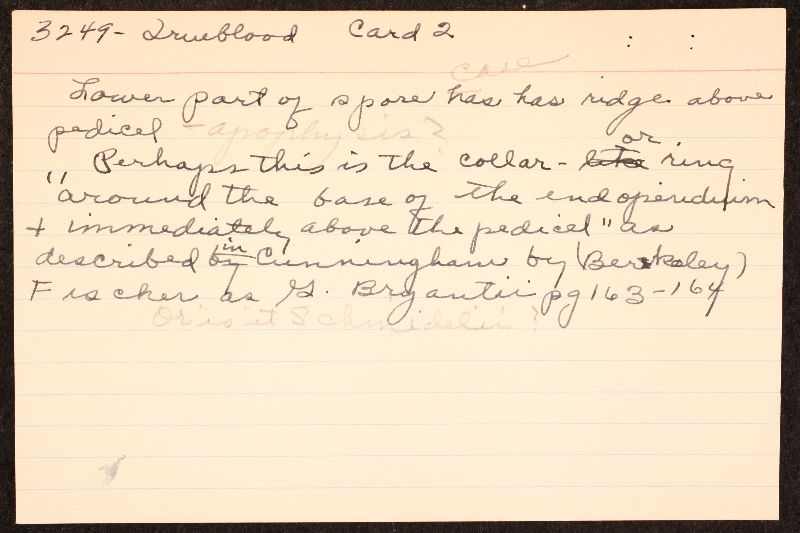 3249 - Trueblood Card 2
case
Lower part of spore has has ridge above
pedicel - apophysis?
or
Perhaps this is the collar - like ring
"around the base of the endoperidium
+ immediately above the pedicel" as
in
described by Cunningham by (Berkeley)
Fischer as G. Bryantii pg 163-164
Or is it Schmidelii ?